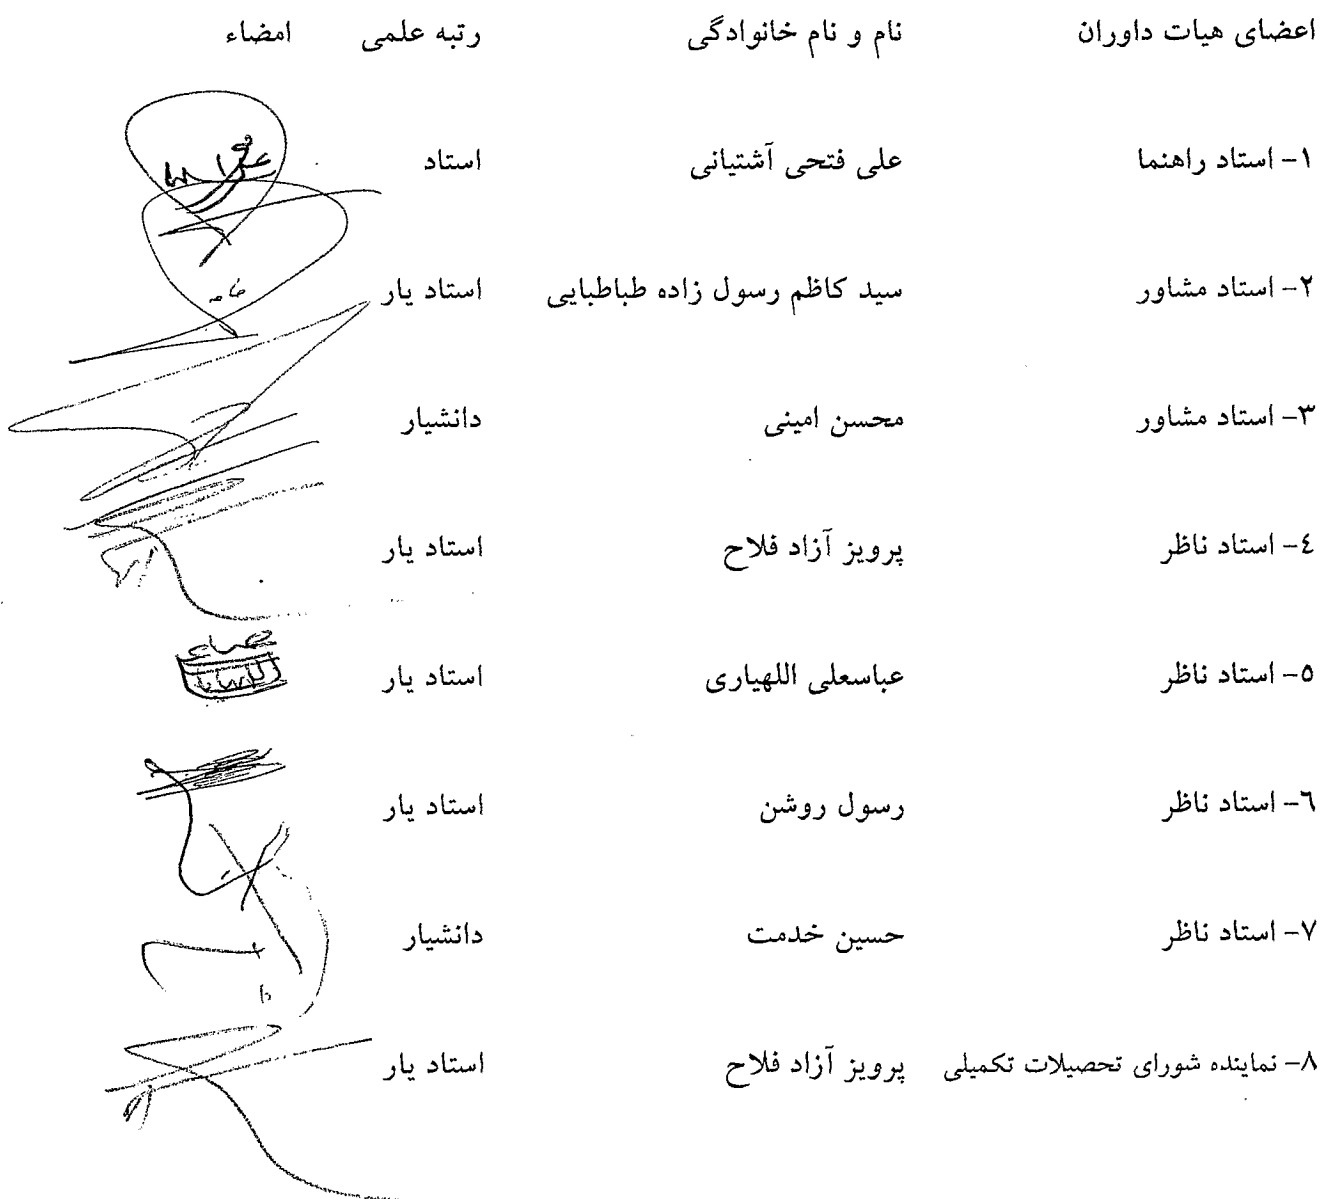 اعضای هیات داوران نام و نام خانوادگی رتبه علمی امضاء
۱- استاد راهنما علی فتحی آشتیانی استاد
۲- استاد مشاور سید کاظم رسول زاده طباطبایی استاد یار
۳- استاد مشاور محسن امینی دانشیار
٤- استاد ناظر پرویز آزاد فلاح استاد یار
۵- استاد ناظر عباسعلی اللهیاری استاد یار
٦- استاد ناظر رسول روشن استاد یار
۷- استاد ناظر حسین خدمت دانشیار
۸- نماینده شورای تحصیلات تکمیلی پرویز آزاد فلاح استاد یار